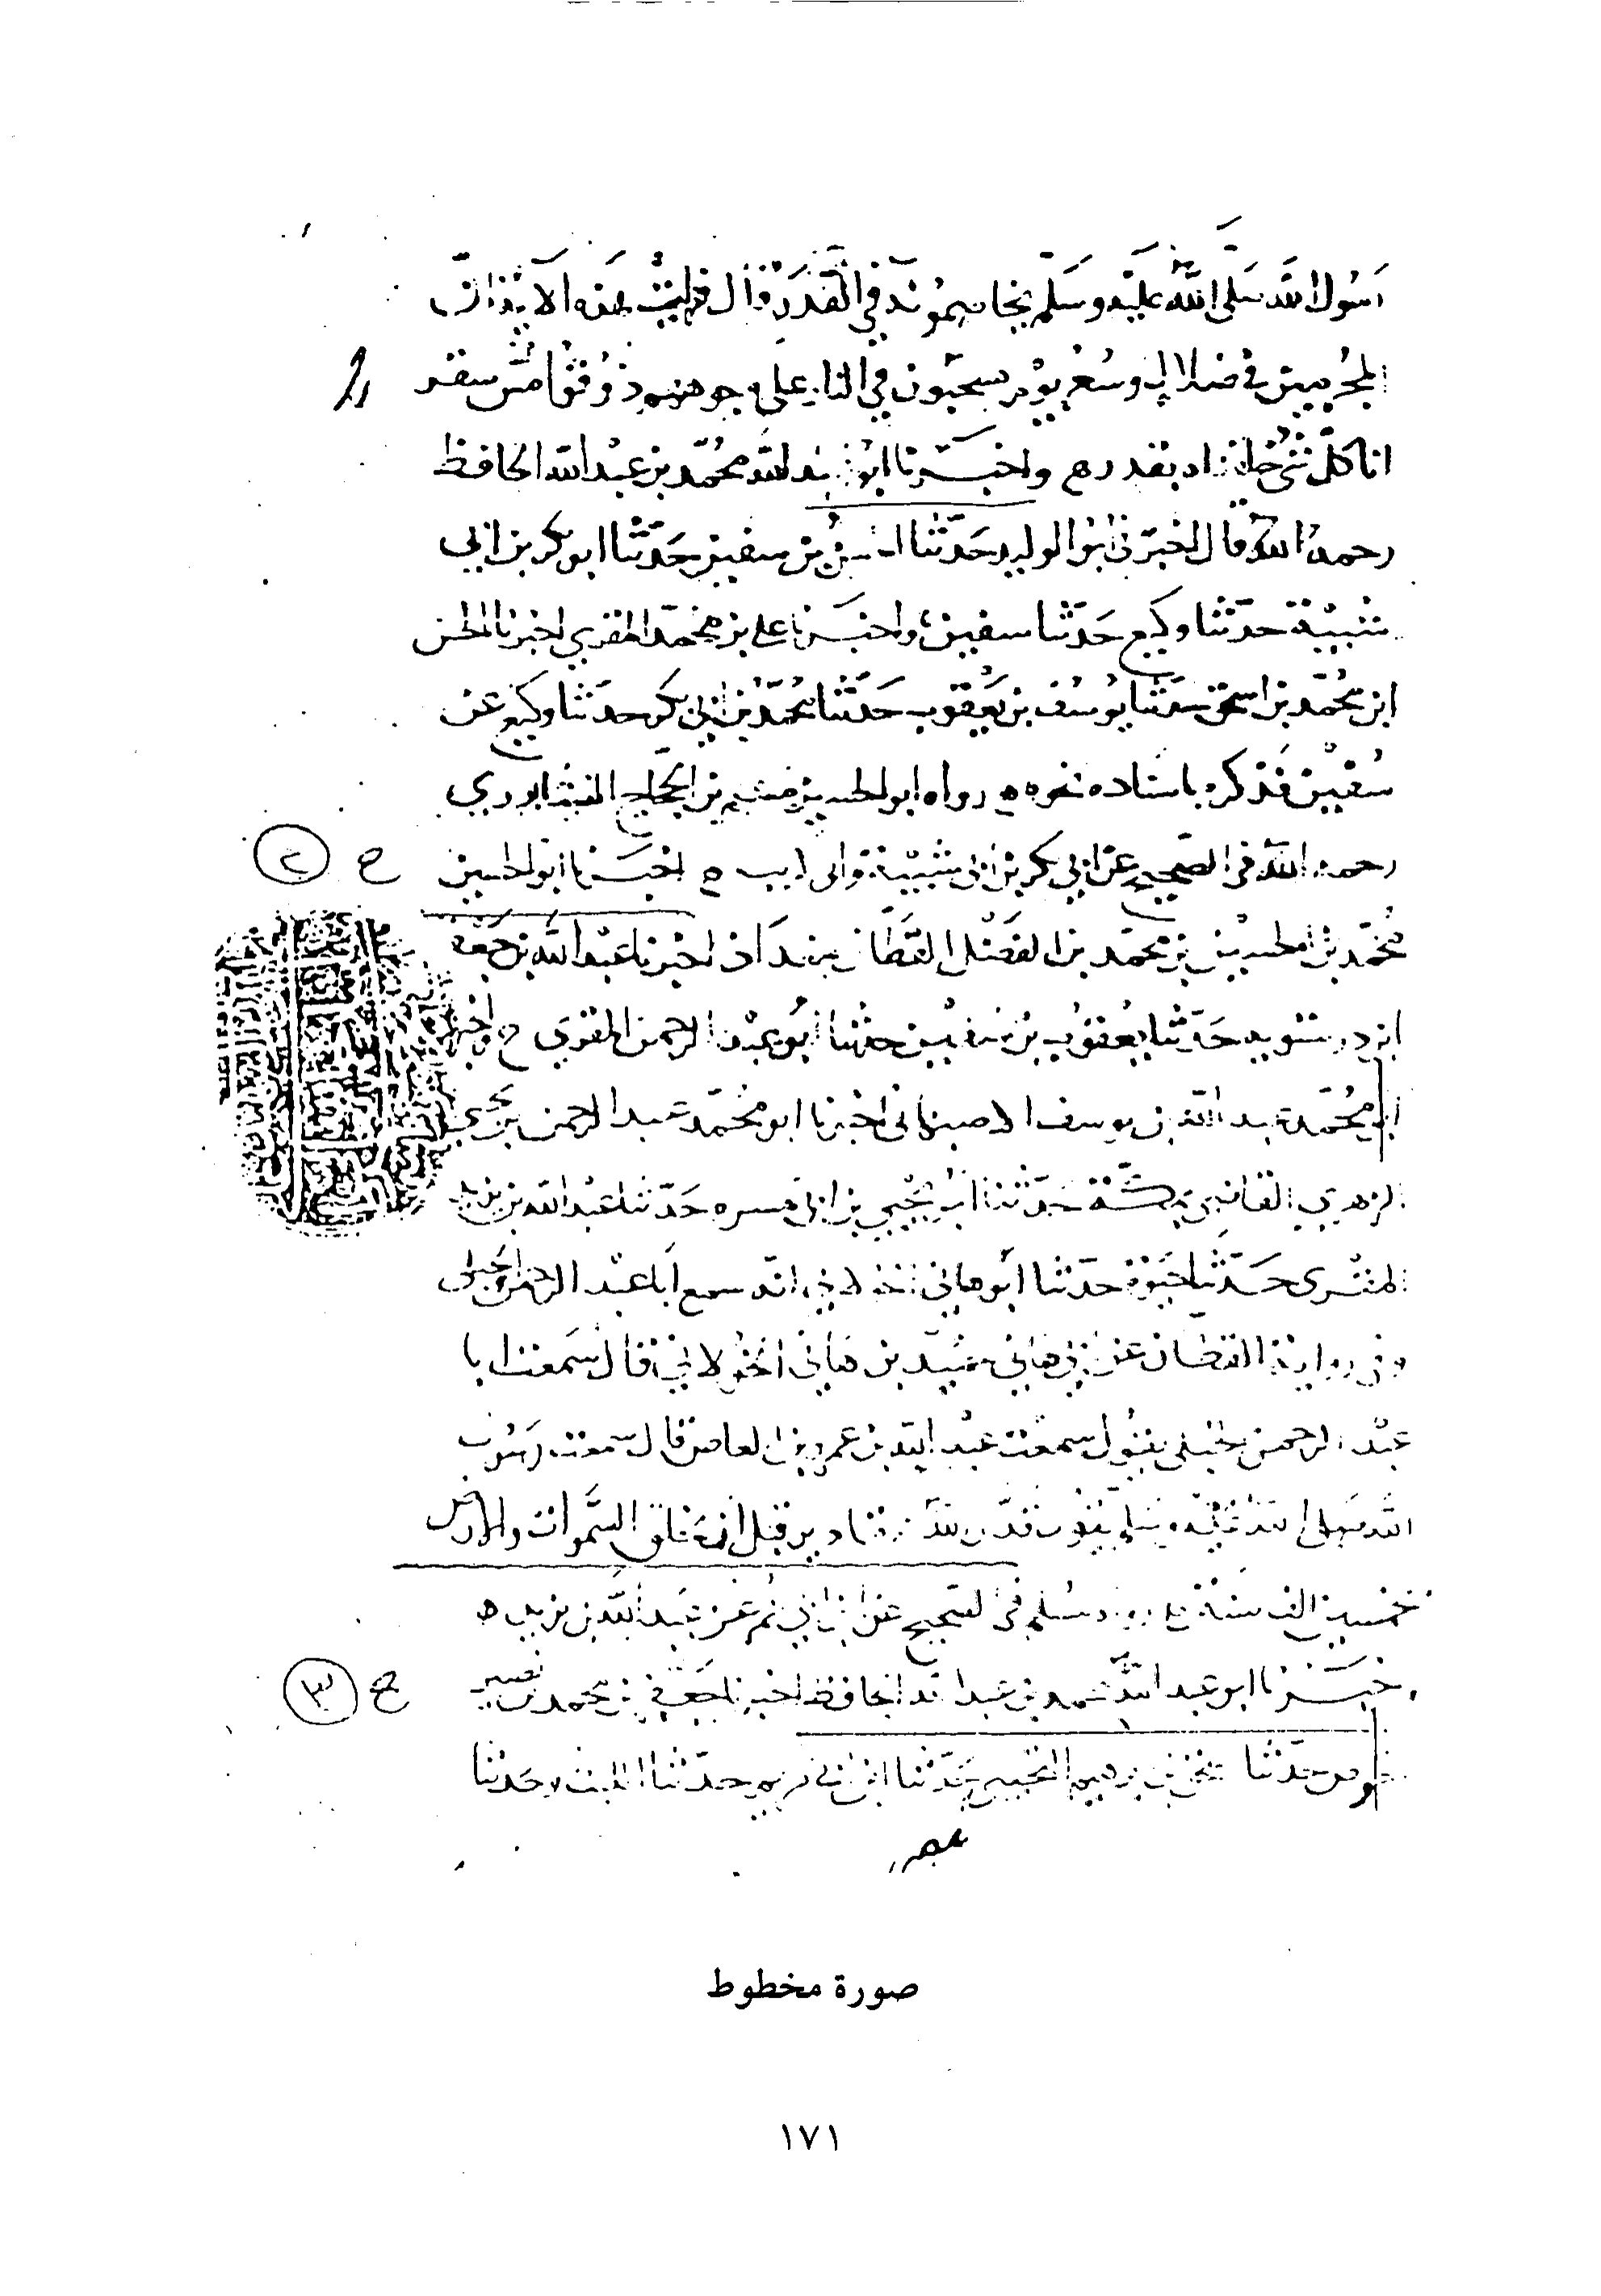 رسول الله صلى الله عليه وسلم يخاصمونه في القدر قال فنزلت هذه الآية إن
المجرمين في ضلال وسعر يوم يسحبون في النار على وجوههم ذوقوا مس سقر
انا كل شئ خلقناه بقدر ه واخبرنا ابو عبد الله محمد بن عبد الله الحافظ
رحمه الله قال اخبرني ابو الوليد حدثنا الحسن بن سفين حدثنا ابو بكر بن ابي
شيبة حدثنا وكيع حدثنا سفين ح واخبرنا علي بن محمد المقري اخبرنا الحسن
ابن محمد بن اسحق حدثنا يوسف بن يعقوب حدثنا محمد بن ابي بكر حدثنا وكيع عن
سفين فذكره باسناده نحوه ه رواه ابو الحسين مسلم بن الحجاج النيشابوري
رحمه الله في الصحيح عن ابي بكر بن ابي شيبة وابي كريب ه اخبرنا ابو الحسين
ح ٢
محمد بن الحسين بن محمد بن الفضل القطان ببغداد اخبرنا عبد الله بن جعفر
ابن درستويه حدثنا يعقوب بن سفين حدثنا ابو عبد الرحمن المقري ح واخبرنا
ابو محمد عبد الله بن يوسف الاصبهاني اخبرنا ابو محمد عبد الرحمن بن يحيى
الزهري القاضي بمكة حدثنا ابو يحيى بن ابي مسره حدثنا عبد الله بن يزيد
المقرى حدثنا حيوة حدثنا ابو هاني الخولاني انه سمع ابا عبد الرحمن الحبلى
وفي رواية القطان عن ابي هاني حميد بن هاني الخولاني قال سمعت ابا
عبد الرحمن الحبلي يقول سمعت عبد الله بن عمرو بن العاص قال سمعت رسول
الله صلى الله عليه وسلم يقول قدر الله المقادير قبل ان يخلق السموات والارض
بخمسين الف سنة رواه مسلم في الصحيح عن ابن ابي عمر عن عبد الله بن يزيد ه
اخبرنا ابو عبد الله محمد بن عبد الله الحافظ اخبرنا جعفر بن محمد بن نصير
ح ٣
حدثنا ابن ابي مريم حدثنا الليث وحدثنا
صورة مخطوط
١٧١